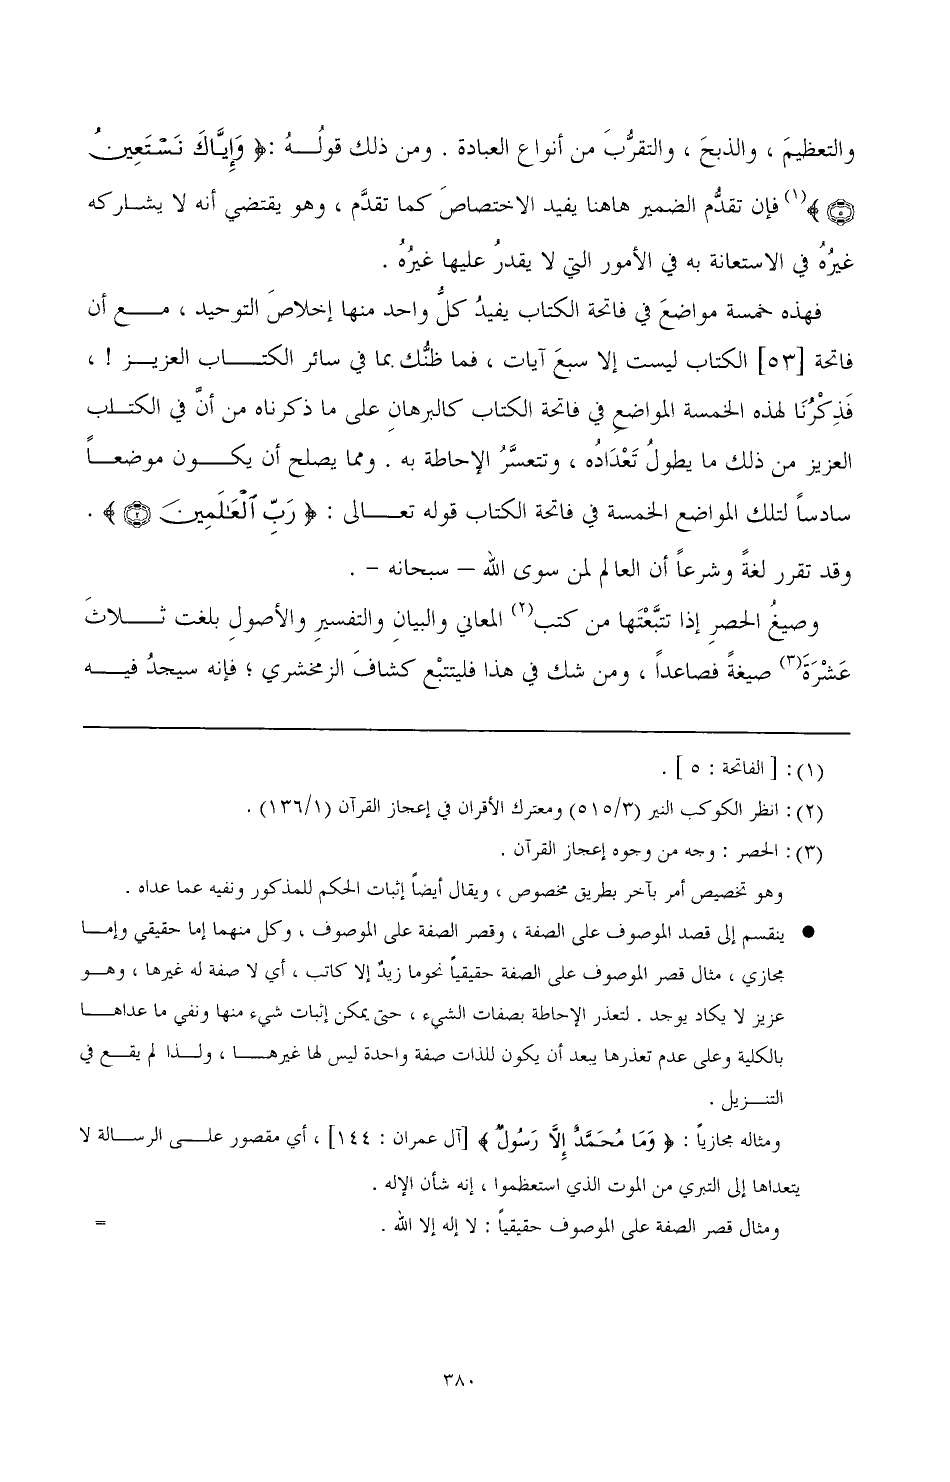 والتعظيمَ ، والذبحَ ، والتقرُّبَ من أنواع العبادة . ومن ذلك قولُـــهُ :﴿ وَإِيَّاكَ نَسْتَعِينُ
﴿٥﴾ ﴾(١) فإن تقدُّم الضمير هاهنا يفيد الاختصاصَ كما تقدَّم ، وهو يقتضي أنه لا يشاركه
غيرُهُ في الاستعانة به في الأمور التي لا يقدرُ عليها غيرُهُ .
فهذه خمسة مواضعَ في فاتحة الكتاب يفيدُ كلُّ واحد منها إخلاصَ التوحيد ، مـــع أن
فاتحة [٥٣] الكتاب ليست إلا سبعَ آيات ، فما ظنُّك بما في سائر الكتـــاب العزيـــز ! ،
فَذِكْرُنَا لهذه الخمسة المواضعِ في فاتحة الكتاب كالبرهانِ على ما ذكرناه من أنَّ في الكتـاب
العزيز من ذلك ما يطولُ تَعْدَادُه ، وتتعسَّرُ الإحاطة به . ومما يصلح أن يكـــون موضعـــاً
سادساً لتلك المواضع الخمسة في فاتحة الكتاب قوله تعـــالى : ﴿ رَبِّ ٱلْعَـٰلَمِينَ ﴿٢﴾ ﴾ .
وقد تقرر لغةً وشرعاً أن العالم لمن سوى الله – سبحانه - .
وصيغُ الحصرِ إذا تتبَّعْتَها من كتب(٢) المعاني والبيانِ والتفسيرِ والأصولِ بلغت ثـــلاثَ
عَشْرَةَ(٣) صيغةً فصاعداً ، ومن شك في هذا فليتتبْع كشافَ الزمخشري ؛ فإنه سيجدُ فيـــه
(١): [ الفاتحة : ٥ ] .
(٢): انظر الكوكب النير (٥١٥/٣) ومعترك الأقران في إعجاز القرآن (١٣٦/١) .
(٣): الحصر : وجه من وجوه إعجاز القرآن .
وهو تخصيص أمر بآخر بطريق مخصوص ، ويقال أيضاً إثبات الحكم للمذكور ونفيه عما عداه .
● ينقسم إلى قصد الموصوف على الصفة ، وقصر الصفة على الموصوف ، وكل منهما إما حقيقي وإمـــا
مجازي ، مثال قصر الموصوف على الصفة حقيقياً نحوما زيدٌ إلا كاتب ، أي لا صفة له غيرها ، وهـــو
عزيز لا يكاد يوجد . لتعذر الإحاطة بصفات الشيء ، حتى يمكن إثبات شيء منها ونفي ما عداهـــا
بالكلية وعلى عدم تعذرها يبعد أن يكون للذات صفة واحدة ليس لها غيرهـــا ، ولـــذا لم يقـــع في
التنـــزيل .
ومثاله مجازياً : ﴿ وَمَا مُحَمَّدٌ إِلَّا رَسُولٌ ﴾ [آل عمران : ١٤٤] ، أي مقصور علـــى الرســـالة لا
يتعداها إلى التبري من الموت الذي استعظموا ، إنه شأن الإله .
ومثال قصر الصفة على الموصوف حقيقياً : لا إله إلا الله . =
٣٨٠